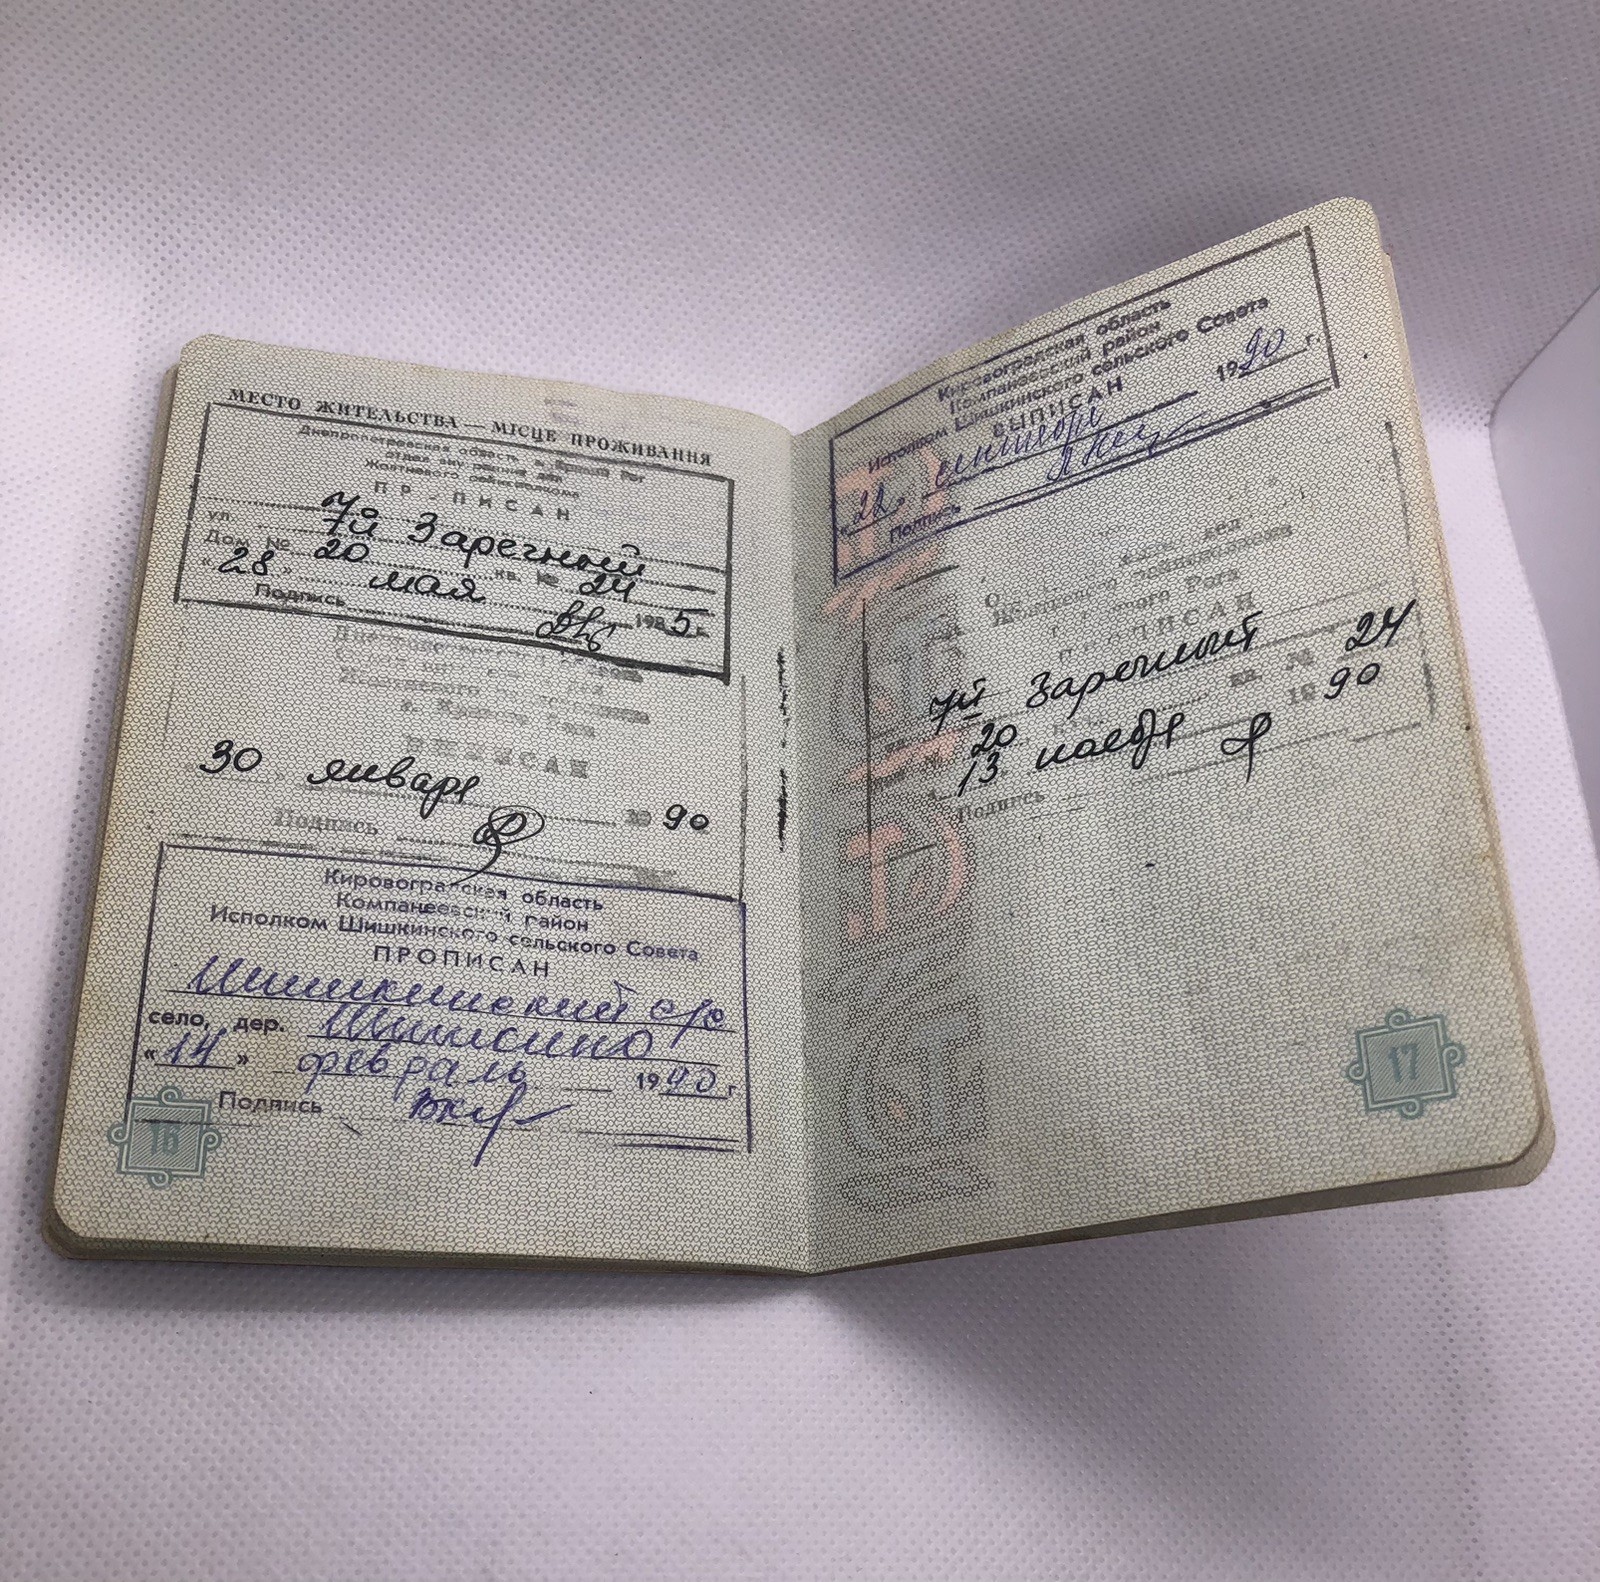 МЕСТО ЖИТЕЛЬСТВА — МІСЦЕ ПРОЖИВАННЯ
Днепропетровская область г. Кривой Рог
отдел вну
Жовтневого райисполкома
ПР-ПИСАН
ул. 7й Заречный
Дом № 20 кв. № 24
"28" мая 1985 г.
Подпись
г. Кривого Рога
ВЫПИСАН
30 января 1990
Подпись
Кировоградская область
Компанеевский район
Исполком Шишкинского сельского Совета
ПРОПИСАН
Шишкинский
село, дер. Шишкино
"14" февраль 1990 г
Подпись
16
Кировоградская область
Компанеевский район
Исполком Шишкинского сельского Совета
ВЫПИСАН
"22" 1990 г.
Подпись
г. Кривого Рога
ПРОПИСАН
7й Заречный
20 кв. № 24
13 ноября 1990
Подпись
17